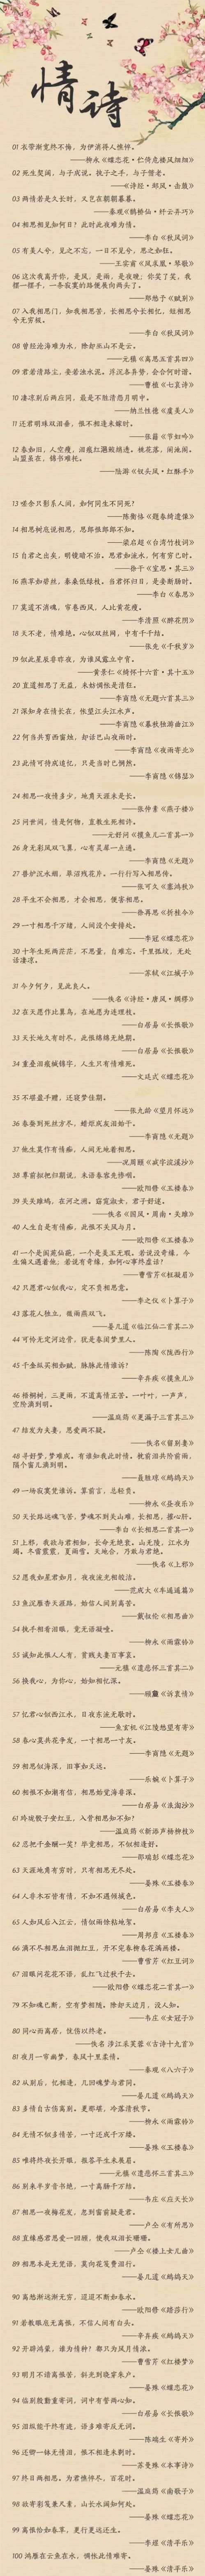 情诗
01 衣带渐宽终不悔，为伊消得人憔悴。
——柳永《蝶恋花·伫倚危楼风细细》
02 死生契阔，与子成说。执子之手，与子偕老。
——《诗经·邶风·击鼓》
03 两情若是久长时，又岂在朝朝暮暮。
——秦观《鹊桥仙·纤云弄巧》
04 相思相见知何日？此时此夜难为情。
——李白《秋风词》
05 有美人兮，见之不忘，一日不见兮，思之如狂。
——王实甫《凤求凰·琴歌》
06 这次我离开你，是风，是雨，是夜晚；你笑了笑，我
摆一摆手，一条寂寞的路便展向两头了。
——郑愁予《赋别》
07 入我相思门，知我相思苦，长相思兮长相忆，短相思
兮无穷极。
——李白《秋风词》
08 曾经沧海难为水，除却巫山不是云。
——元稹《离思五首其四》
09 君若清路尘，妾若浊水泥。浮沉各异势，会合何时谐。
——曹植《七哀诗》
10 凄凉别后两应同，最是不胜清怨月明中。
——纳兰性德《虞美人》
11 还君明珠双泪垂，恨不相逢未嫁时。
——张籍《节妇吟》
12 春如旧，人空瘦，泪痕红浥鲛绡透。桃花落，闲池阁。
山盟虽在，锦书难托。
——陆游《钗头凤·红酥手》
13 嗟余只影系人间，如何同生不同死？
——陈衡恪《题春绮遗像》
14 相思树底说相思，思郎恨郎郎不知。
——梁启超《台湾竹枝词》
15 自君之出矣，明镜暗不治。思君如流水，何有穷已时。
——徐干《室思·其三》
16 燕草如碧丝，秦桑低绿枝。当君怀归日，是妾断肠时。
——李白《春思》
17 莫道不消魂，帘卷西风，人比黄花瘦。
——李清照《醉花阴》
18 天不老，情难绝。心似双丝网，中有千千结。
——张先《千秋岁》
19 似此星辰非昨夜，为谁风露立中宵。
——黄景仁《绮怀十六首·其十五》
20 直道相思了无益，未妨惆怅是清狂。
——李商隐《无题六首其三》
21 深知身在情长在，怅望江头江水声。
——李商隐《暮秋独游曲江》
22 何当共剪西窗烛，却话巴山夜雨时。
——李商隐《夜雨寄北》
23 此情可待成追忆，只是当时已惘然。
——李商隐《锦瑟》
24 相思一夜情多少，地角天涯未是长。
——张仲素《燕子楼》
25 问世间，情是何物，直教生死相许。
——元好问《摸鱼儿二首其一》
26 身无彩凤双飞翼，心有灵犀一点通。
——李商隐《无题》
27 兽炉沉水烟，翠沼残花片。一行行写入相思传。
——张可久《塞鸿秋》
28 平生不会相思，才会相思，便害相思。
——徐再思《折桂令》
29 一寸相思千万绪，人间没个安排处。
——李冠《蝶恋花》
30 十年生死两茫茫，不思量，自难忘。千里孤坟，无处
话凄凉。
——苏轼《江城子》
31 今夕何夕，见此良人。
——佚名《诗经·唐风·绸缪》
32 在天愿作比翼鸟，在地愿为连理枝。
——白居易《长恨歌》
33 天长地久有时尽，此恨绵绵无绝期。
——白居易《长恨歌》
34 重叠泪痕缄锦字，人生只有情难死。
——文廷式《蝶恋花》
35 不堪盈手赠，还寝梦佳期。
——张九龄《望月怀远》
36 春蚕到死丝方尽，蜡炬成灰泪始干。
——李商隐《无题》
37 他生莫作有情痴，人间无地着相思。
——况周颐《减字浣溪沙》
38 尊前拟把归期说，未语春容先惨咽。
——欧阳修《玉楼春》
39 关关雎鸠，在河之洲。窈窕淑女，君子好逑。
——佚名《国风·周南·关雎》
40 人生自是有情痴，此恨不关风与月。
——欧阳修《玉楼春》
41 一个是阆苑仙葩，一个是美玉无瑕。若说没奇缘，今
生偏又遇着他。若说有奇缘，如何心事终虚话？
——曹雪芹《枉凝眉》
42 只愿君心似我心，定不负相思意。
——李之仪《卜算子》
43 落花人独立，微雨燕双飞。
——晏几道《临江仙二首其二》
44 可怜无定河边骨，犹是春闺梦里人。
——陈陶《陇西行》
45 千金纵买相如赋，脉脉此情谁诉？
——辛弃疾《摸鱼儿》
46 梧桐树，三更雨，不道离情正苦。一叶叶，一声声，
空阶滴到明。
——温庭筠《更漏子三首其三》
47 结发为夫妻，恩爱两不疑。
——佚名《留别妻》
48 寻好梦，梦难成。有谁知我此时情。枕前泪共阶前雨，
隔个窗儿滴到明。
——聂胜琼《鹧鸪天》
49 一场寂寞凭谁诉。算前言，总轻负。
——柳永《昼夜乐》
50 天长路远魂飞苦，梦魂不到关山难。长相思，摧心肝。
——李白《长相思二首其一》
51 上邪，我欲与君相知，长命无绝衰。山无陵，江水为
竭。冬雷震震，夏雨雪。天地合，乃敢与君绝。
——佚名《上邪》
52 愿我如星君如月，夜夜流光相皎洁。
——范成大《车遥遥篇》
53 鱼沉雁杳天涯路，始信人间别离苦。
——戴叔伦《相思曲》
54 执手相看泪眼，竟无语凝噎。
——柳永《雨霖铃》
55 诚知此恨人人有，贫贱夫妻百事哀。
——元稹《遣悲怀三首其二》
56 换我心，为你心，始知相忆深。
——顾敻《诉衷情》
57 忆君心似西江水，日夜东流无歇时。
——鱼玄机《江陵愁望有寄》
58 春心莫共花争发，一寸相思一寸灰。
——李商隐《无题》
59 相思似海深，旧事如天远。
——乐婉《卜算子》
60 相恨不如潮有信，相思始觉海非深。
——白居易《浪淘沙》
61 玲珑骰子安红豆，入骨相思知不知？
——温庭筠《新添声杨柳枝》
62 忍把千金酬一笑？毕竟相思，不似相逢好。
——邵瑞彭《蝶恋花》
63 天涯地角有穷时，只有相思无尽处。
——晏殊《玉楼春》
64 人非木石皆有情，不如不遇倾城色。
——白居易《李夫人》
65 人如风后入江云，情似雨馀粘地絮。
——周邦彦《玉楼春》
66 滴不尽相思血泪抛红豆，开不完春柳春花满画楼。
——曹雪芹《红豆词》
67 泪眼问花花不语，乱红飞过秋千去。
——欧阳修《蝶恋花二首其一》
79 不知魂已断，空有梦相随。除却天边月，没人知。
——韦庄《女冠子》
80 同心而离居，忧伤以终老。
——佚名 涉江采芙蓉《古诗十九首》
81 夜月一帘幽梦，春风十里柔情。
——秦观《八六子》
82 从别后，忆相逢，几回魂梦与君同。
——晏几道《鹧鸪天》
83 多情自古伤离别。更那堪，冷落清秋节。
——柳永《雨霖铃》
84 无情不似多情苦，一寸还成千万缕。
——晏殊《玉楼春》
85 唯将终夜长开眼，报答平生未展眉。
——元稹《遣悲怀三首其三》
86 别来半岁音书绝，一寸离肠千万结。
——韦庄《应天长》
87 相思一夜梅花发，忽到窗前疑是君。
——卢仝《有所思》
88 直缘感君恩爱一回顾，使我双泪长珊珊。
——卢仝《楼上女儿曲》
89 相思本是无凭语，莫向花笺费泪行。
——晏几道《鹧鸪天》
90 离愁渐远渐无穷，迢迢不断如春水。
——欧阳修《踏莎行》
91 若教眼底无离恨，不信人间有白头。
——辛弃疾《鹧鸪天》
92 开辟鸿蒙，谁为情种？都只为风月情浓。
——曹雪芹《红楼梦》
93 明月不谙离恨苦，斜光到晓穿朱户。
——晏殊《蝶恋花》
94 临别殷勤重寄词，词中有誓两心知。
——白居易《长恨歌》
95 泪纵能干终有迹，语多难寄反无词。
——陈端生《寄外》
96 还卿一钵无情泪，恨不相逢未剃时。
——苏曼殊《本事诗》
97 终日两相思。为君憔悴尽，百花时。
——温庭筠《南歌子》
98 欲寄彩笺兼尺素，山长水阔知何处。
——晏殊《蝶恋花》
99 离恨恰如春草，更行更远还生。
——李煜《清平乐》
100 鸿雁在云鱼在水，惆怅此情难寄。
——晏殊《清平乐》